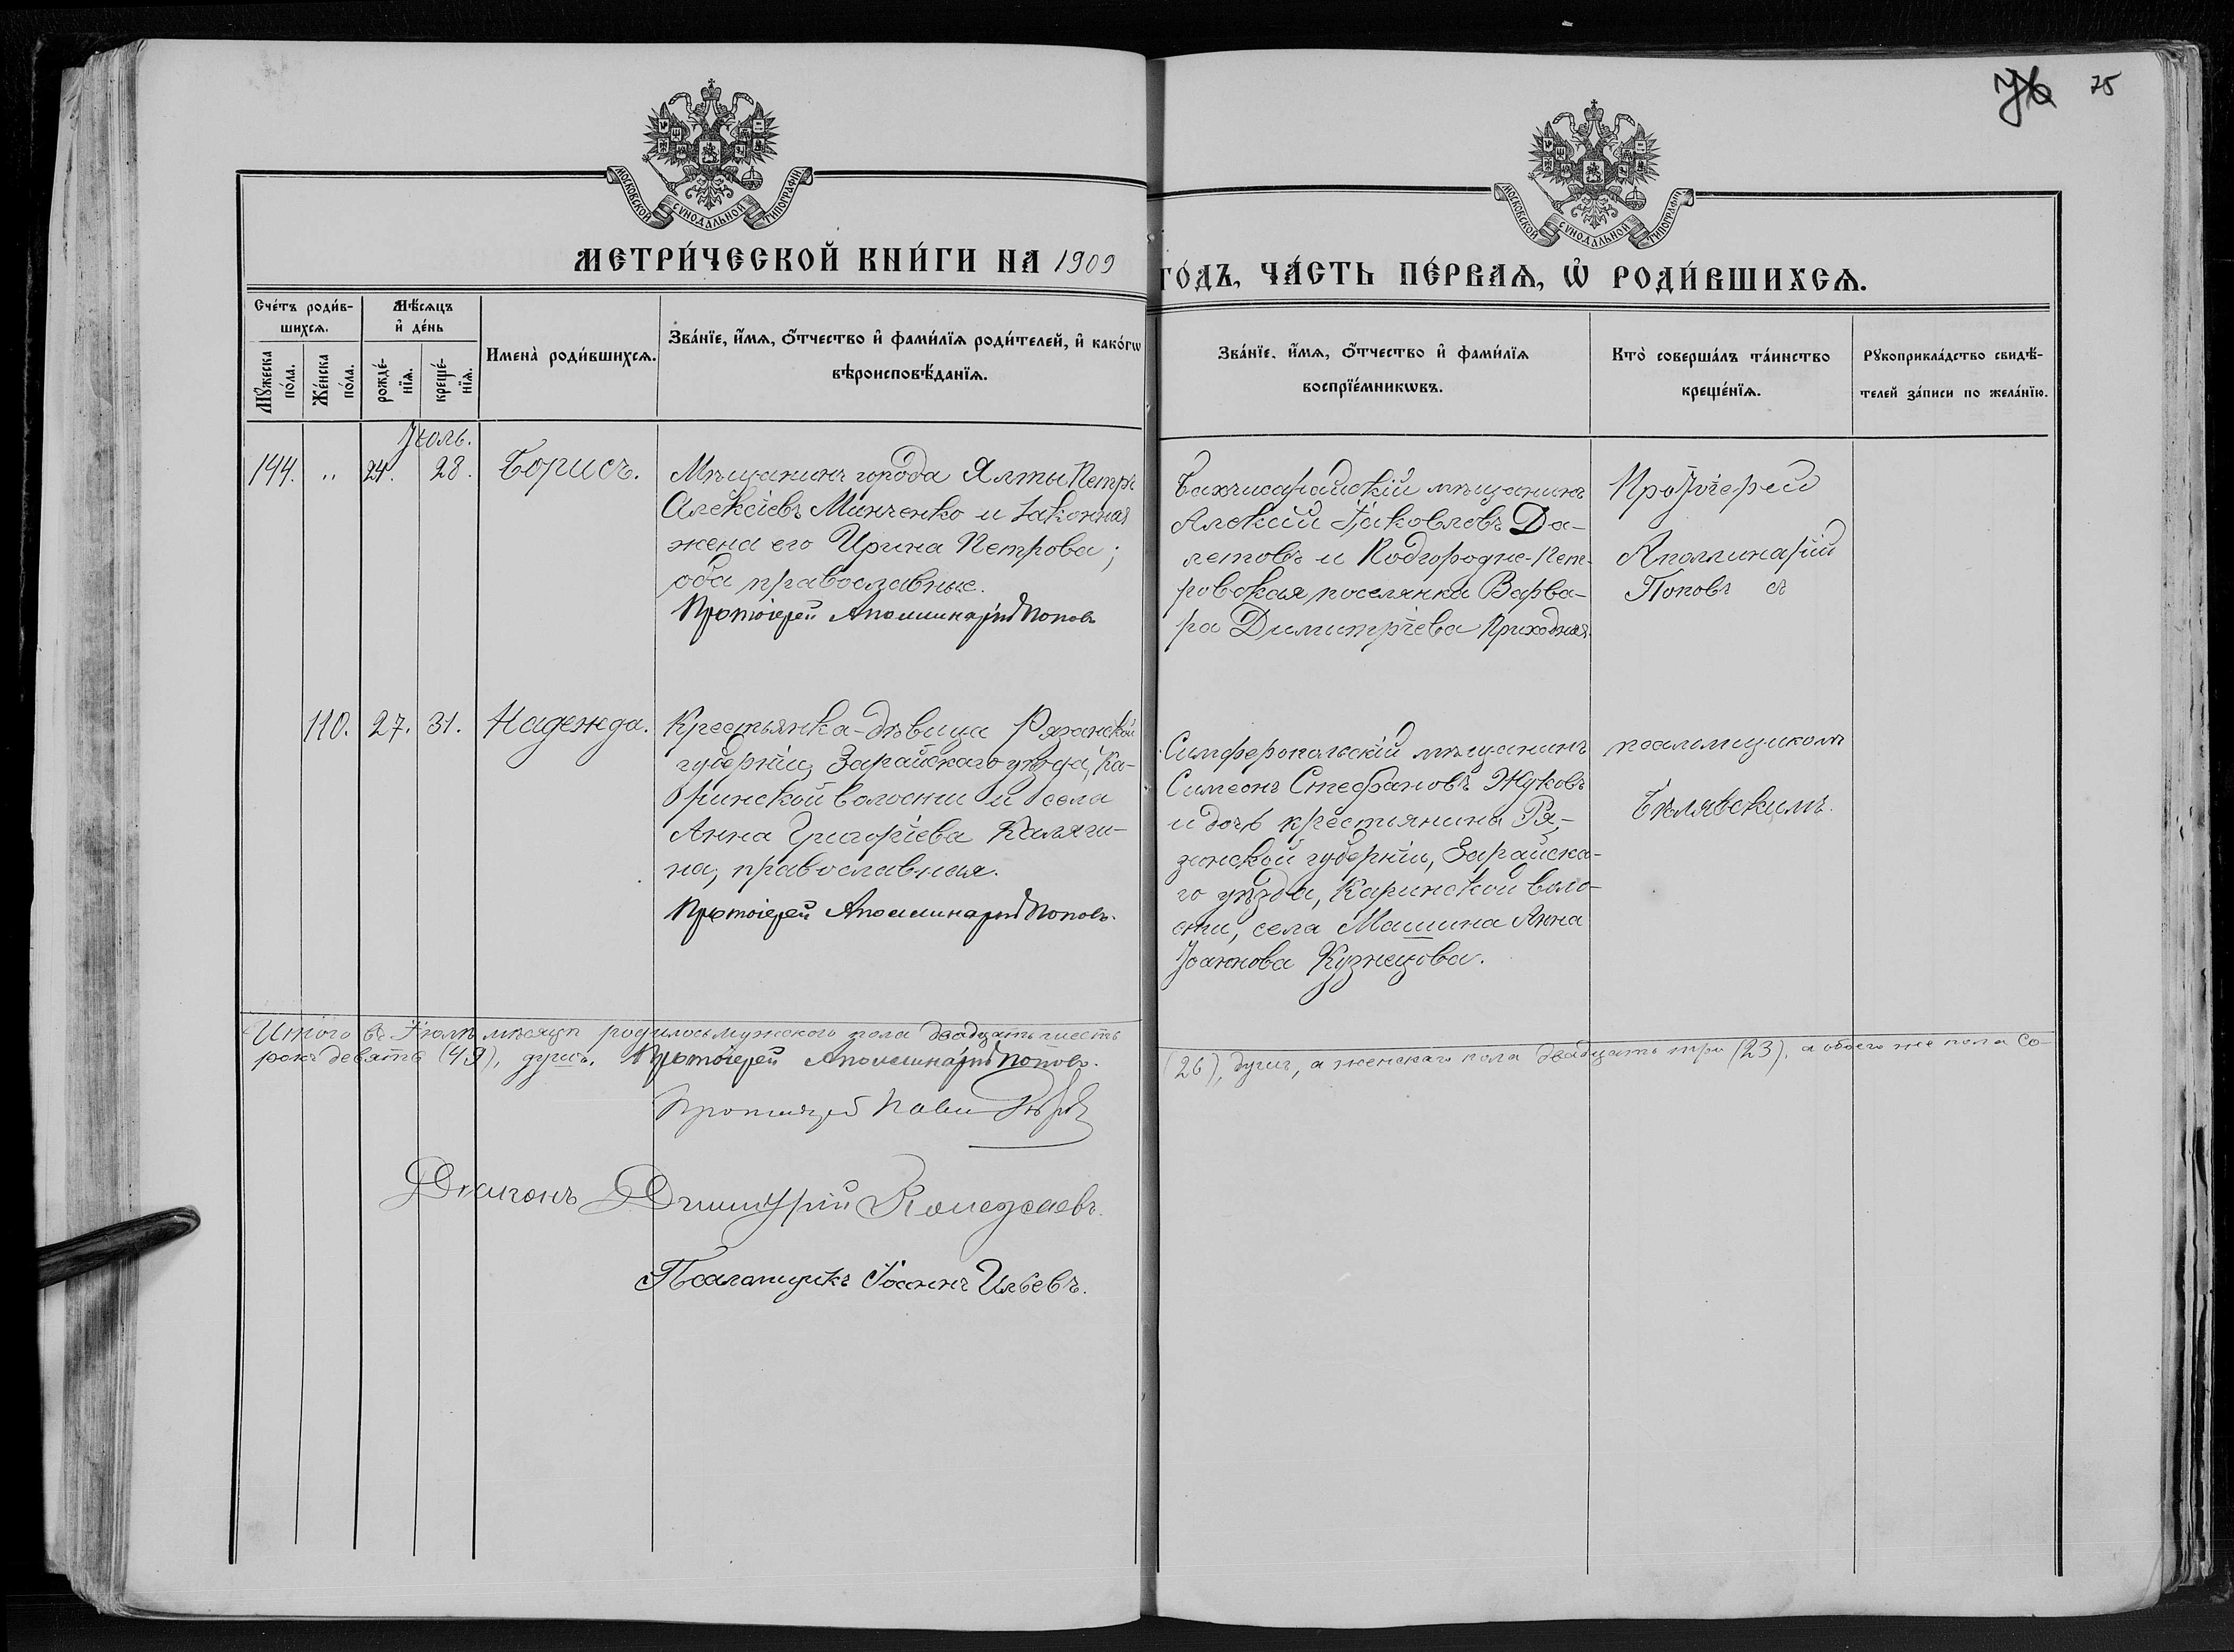 76 75
МОСКОВСКОЙ СѴНОДАЛЬНОЙ ТИПОГРАФІИ
МОСКОВСКОЙ СѴНОДАЛЬНОЙ ТИПОГРАФІИ
МЕТРИ́ЧЕСКОЙ КНИ́ГИ НА 1909
ГО́ДЪ, ЧА́СТЬ ПЕ́РВАѦ, Ѡ҆ РОДИ́ВШИХСѦ.
Сче́тъ роди́в-
шихсѧ.
Мꙋ́жеска
по́ла.
Же́нска
по́ла.
Мѣ́сѧцъ
и҆ де́нь
рожде́-
нїѧ.
креще́-
нїѧ.
Имена̀ роди́вшихсѧ.
Зва́нїе, и҆́мѧ, ѻ҆́тчество и҆ фами́лїѧ роди́телей, и҆ како́гѡ
вѣроисповѣ́данїѧ.
Зва́нїе, и҆́мѧ, ѻ҆́тчество и҆ фами́лїѧ
воспрїе́мникѡвъ.
Кто̀ соверша́лъ та́инство
креще́нїѧ.
Рꙋкоприкла́дство свидѣ́-
телей за́писи по жела́нїю.
Іюль.
144. „ 24. 28. Борисъ.
Мѣщанинъ города Ялты Петръ
Алексіевъ Минченко и законная
жена его Ирина Петрова;
оба православные.
Протоіерей Аполлинарій Поповъ
Бахчисарайскій мѣщанинъ
Алексій Іаковлевъ Да-
летовъ и Подгородне-Пет-
ровская поселянка Варва-
ра Димитріева Приходная.
Протоіерей
Аполлинарій
Поповъ съ
110. 27. 31. Надежда.
Крестьянка-дѣвица Рязанской
губерніи, Зарайскаго уѣзда, Ка-
ринской волости и села
Анна Григоріева Каляги-
на, православная.
Протоіерей Аполлинарій Поповъ.
Симферопольскій мѣщанинъ
Симеонъ Стефановъ Жуковъ
и дочь крестьянина Ря-
занской губерніи, Зарайска-
го уѣзда, Каринской воло-
сти, села Машина Анна
Іоаннова Кузнецова.
псаломщикомъ
Бѣлявскимъ.
Итого въ Іюлѣ мѣсяцѣ родилось мужского пола двадцать шесть
(26), душъ, а женскаго пола двадцать три (23), а обоего же пола со-
рокъ девять (49), душъ. Протоіерей Аполлинарій Поповъ.
Протоіерей Павелъ
Діаконъ Димитрій
Псаломщикъ Іоаннъ Ильевъ.